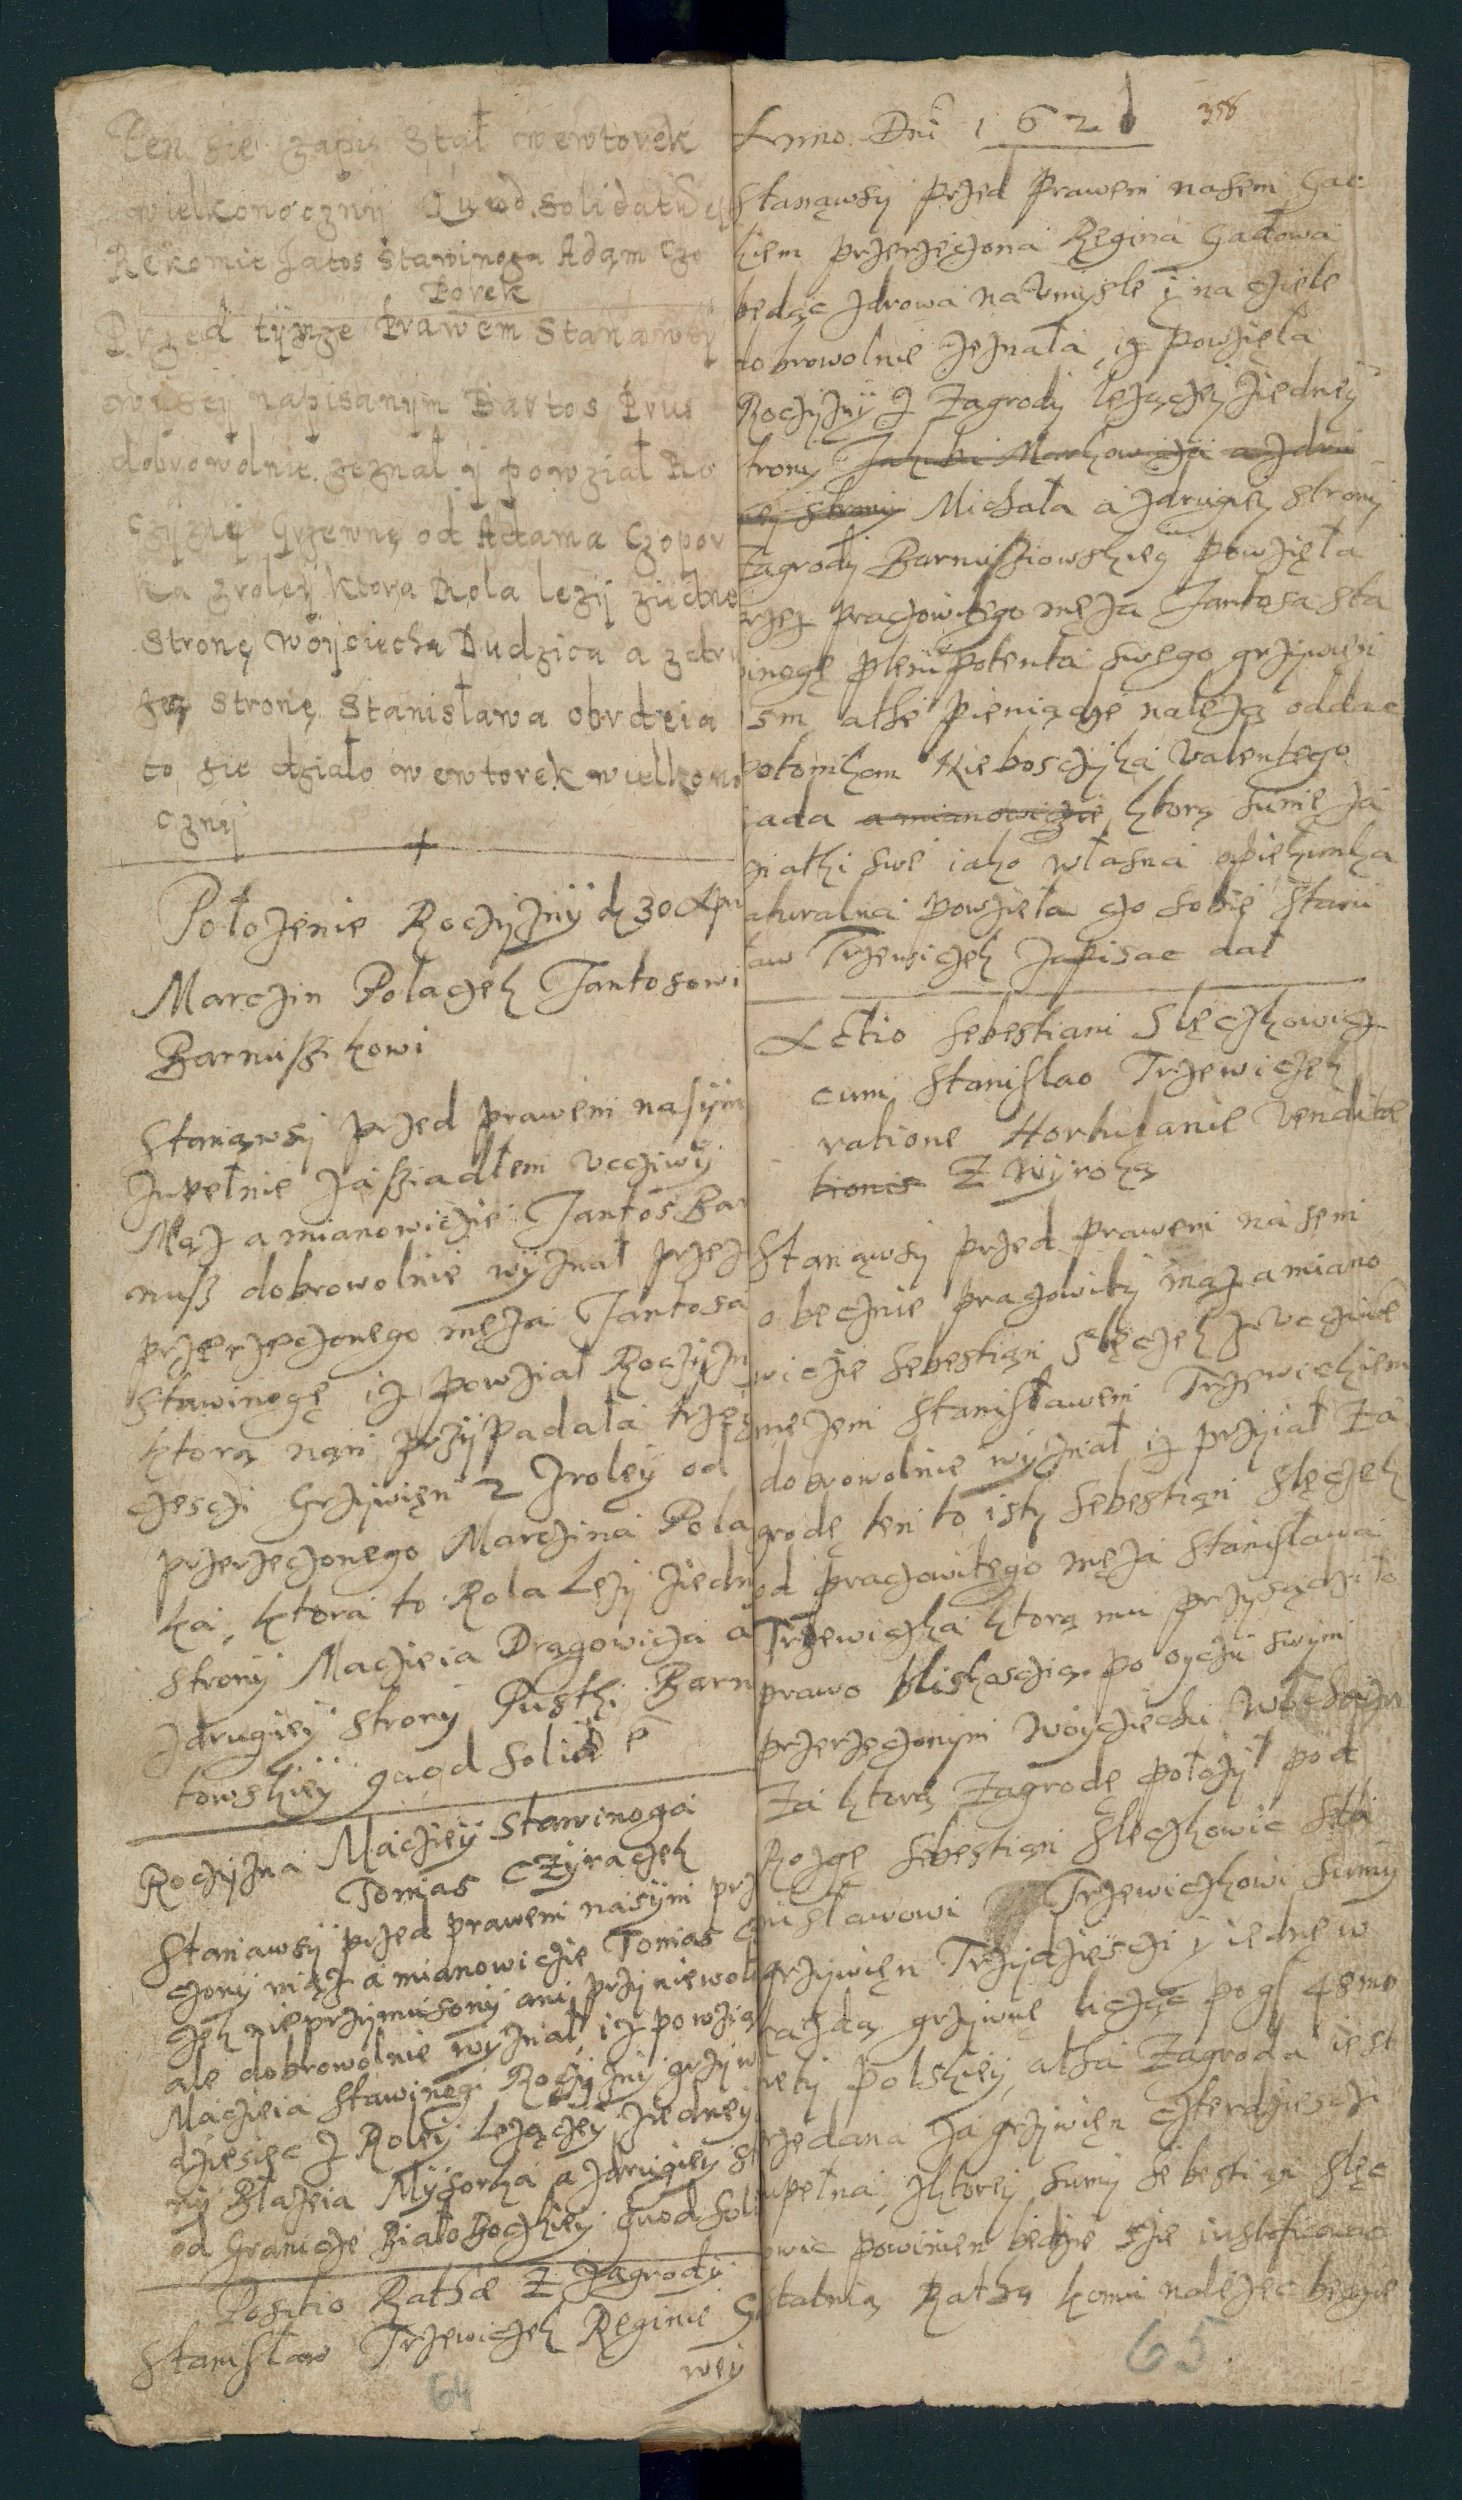 Ten sie zapis Stył wewtorek
wielkonoczny Quod Solidatū ē
Rekomie Jatos Stawinoga Adam Czo
Porek
Przed tymze Prawem Stanawsy
wysey napisanym Bartos Prus
dobrowolnie zeznał yz powział Ro
czyznę Grzewnę od Adama Czopor
ka zroley ktora Rola lezy ziedne
Stronę Woyciecha Dudzica a zdru
gą Stronę Stanisława obrdzia
to sie działo wewtorek wielkono
czny
Położenie Roczyzny d 30 Apr
Marczin Polaczek Jantosowi
Barnussikowi
Stanąwsy przed prawem nasym
zupełnie zassiadłem vczciwy
Mąz a mianowiczie Jantos Bar
nuss dobrowolnie wyznał przez
przerzeczonego męza Jantosa
Stawinogę iz powział Roczyzn
ktorą nąn przypadała trze
czesci Grzywien 2 zroley od
przerzeczonego Marczina Pola
ka, ktora to Rola Lezy ziedn
strony Maczieia Dragowicza a
zdrugiey strony Pustki Barn
towskiey quod solid ē
Roczyzna Macziey Stawinoga
Tomas Czyraczek
Stanawsy przed prawem nasym prz
czony mąz a mianowiczie Tomas C
zek nieprzymusony ani przyniewol
ale dobrowolnie wyznał, iz powzią
Maczieia Stawinogi Roczyzny grzyw
dziesięc z Roley Lezączey ziedney
ny Błazeia Mysorka a zdrugiey st
od Granicze Białobockiey Quod Soli
Positio Rathæ Z Zagrody
Stanisław Trzewiczek Reginie Ga
wey
64
Anno Dni 1621
358
Stanąwsy przed Prawem nasem Gac
kiem przerzeczona Regina Gałowa
będąc zdrowa na Vmysle y na cziele
dobrowolnie zeznała, iz powzięła
Roczyzny z Zagrody lezączey ziedney
trony Jakubi Markowiczа a zdru
giey strony Michała a zdrugiey strony
Zagrody Barnussiowskiey powzięła
rzez praczowitego męza Jantosa Sta
inogę plenipotenta swego grzywien
5 m athe pieniądze nalezą oddac
potomkom Nieboscyka Valentego
ada a mianowiczie ktorą sumę za
ziatki swe iako własna opiekunka
aturalna powzięła czo sobie Stani
ław Trzewiczek zapisac dał
Actio Sebestiani Slęczkowicz
cum Stanislao Trzewiczek
ratione Hortulaniæ Venditæ
tionis Z wyroką
Stanąwsy przed prawem nasem
obecznie praczowity mąz a miano
wiczie Sebestian Slęczek z vczciwe
męzem Stanisławem Trzewiczkiem
dobrowolnie wyznał iz przyiał Za
grodę ten to isty Sebestian Slęczek
od praczowitego męza Stanisława
Trzewiczka ktorą mu przysądziło
prawo bliskosczią po oyczu swym
przerzeczonym Woyciechu
Za ktorą Zagrodę połozył pod
Rozgę Sebestian Slęczkowic Sta
nisławowi Trzewiczkowi sumy
grzywien Trzydziesci y iednę w
kazdą grzywnę licząc po gſ 48 mo
nety polskiey, atha Zagroda iest
rzedana za grzywien czterdziesci
upełna, zktorey sumy Sebestian Slęc
owic powinien bedzie sie iustificowac
statnią Rathą komu nalezec bedzie
65